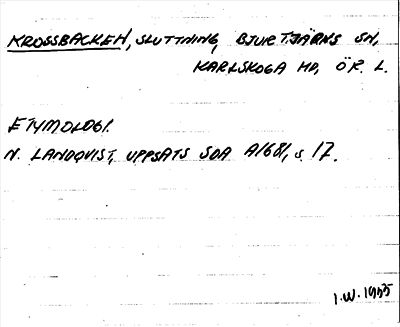 KROSSBACKEN, SLUTTNING, BJURTJÄRNS SN,
KARLSKOGA HD, ÖR. L.
ETYMOLOGI.
N. LANDQVIST, UPPSATS SOA A1681, s 17.
I.W. 1935